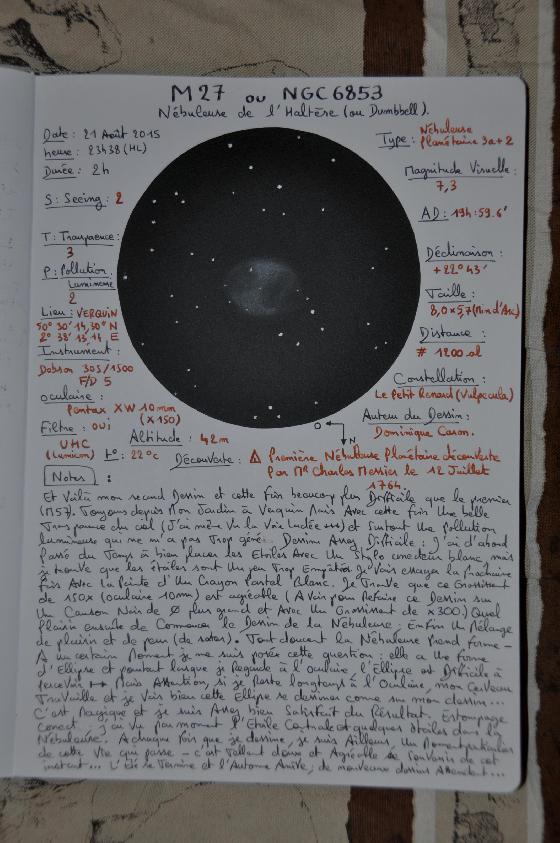 M27 ou NGC6853
Nébuleuse de l'Haltère (ou Dumbbell).
Date : 21 Août 2015
heure : 23h38 (HL)
Durée : 2h
S : Seeing : 2
T : Transparence :
3
P : Pollution
Lumineuse
2
Lieu : VERQUIN
50° 30' 14,30" N
2° 38' 13,14 E
Instrument :
Dobson 305/1500
F/D 5
oculaire :
Pentax XW 10mm
(X150)
Filtre : oui
UHC
(Lumicon)
Altitude : 42m
t° : 22°c
Type : Nébuleuse
Planétaire 3a+2
Magnitude Visuelle :
7,3
AD : 19h:59.6'
Déclinaison :
+22°43'
Taille :
8,0x5,7 (Min d'Arc)
Distance :
# 1200 al
Constellation :
Le Petit Renard (Vulpecula)
Auteur du Dessin :
Dominique Caron.
O
N
Découverte : Première Nébuleuse Planétaire découverte
Par Mr Charles Messier le 12 Juillet
1764.
Notes :
Et Voilà mon second Dessin et cette fois beaucoup plus Difficile que le premier
(M57). Toujours depuis Mon Jardin à Verquin Mais Avec cette fois Une belle
Transparence du ciel (J'ai même Vu la Voie Lactée +++) et Surtout Une Pollution
lumineuse qui ne m'a pas Trop géné. Dessin Assez Difficile : J'ai d'abord
Passé du Temps à bien placer les Etoiles Avec Un Stylo correcteur blanc mais
je trouve que les étoiles sont Un peu Trop Je Vais essayer la prochaine
fois Avec la Pointe d'Un Crayon Pastel Blanc. Je Trouve que ce Grossissement
de 150x (oculaire 10mm) est agréable (A Voir pour Refaire ce Dessin sur
Un Canson Noir de Ø plus grand et Avec Un Grossissant de x300) Quel
Plaisir ensuite de Commencer le Dessin de la Nébuleuse. Enfin Un Mélange
de plaisir et de peur (de rater). Tout doucement la Nébuleuse Prend forme -
A un certain Moment je me suis posée cette question : elle a Une forme
d'Ellipse et pourtant lorsque je Regarde à l'Oculaire l'Ellipse est Difficile à
percevoir Mais Attention, si je Reste longtemps à l'Oculaire, mon Cerveau
Travaille et je Vois bien cette Ellipse se dessiner comme sur mon dessin...
C'est Magique et je suis Assez bien Satisfait du Résultat, Estompage
Correct, j'ai Vu par moment l'Etoile Centrale et quelques étoiles dans la
Nébuleuse. A chaque fois que je dessine, je suis Ailleurs, Un Moment particulier
de cette Vie qui passe - c'est Tellement doux et Agréable de Souvenir de cet
instant... L'Eté se Termine et l'Automne Arrive, de nouveaux dessins Attendent...